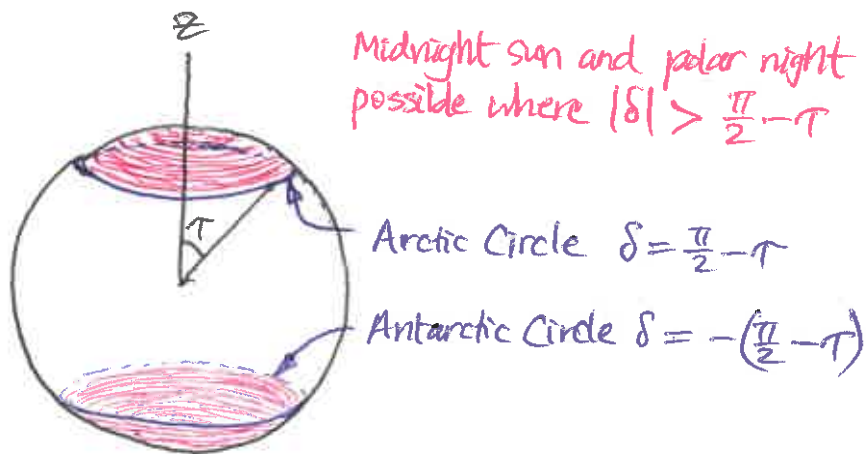 z
Midnight sun and polar night
possible where |δ| > π/2 - τ
τ
Arctic Circle δ = π/2 - τ
Antarctic Circle δ = -(π/2 - τ)